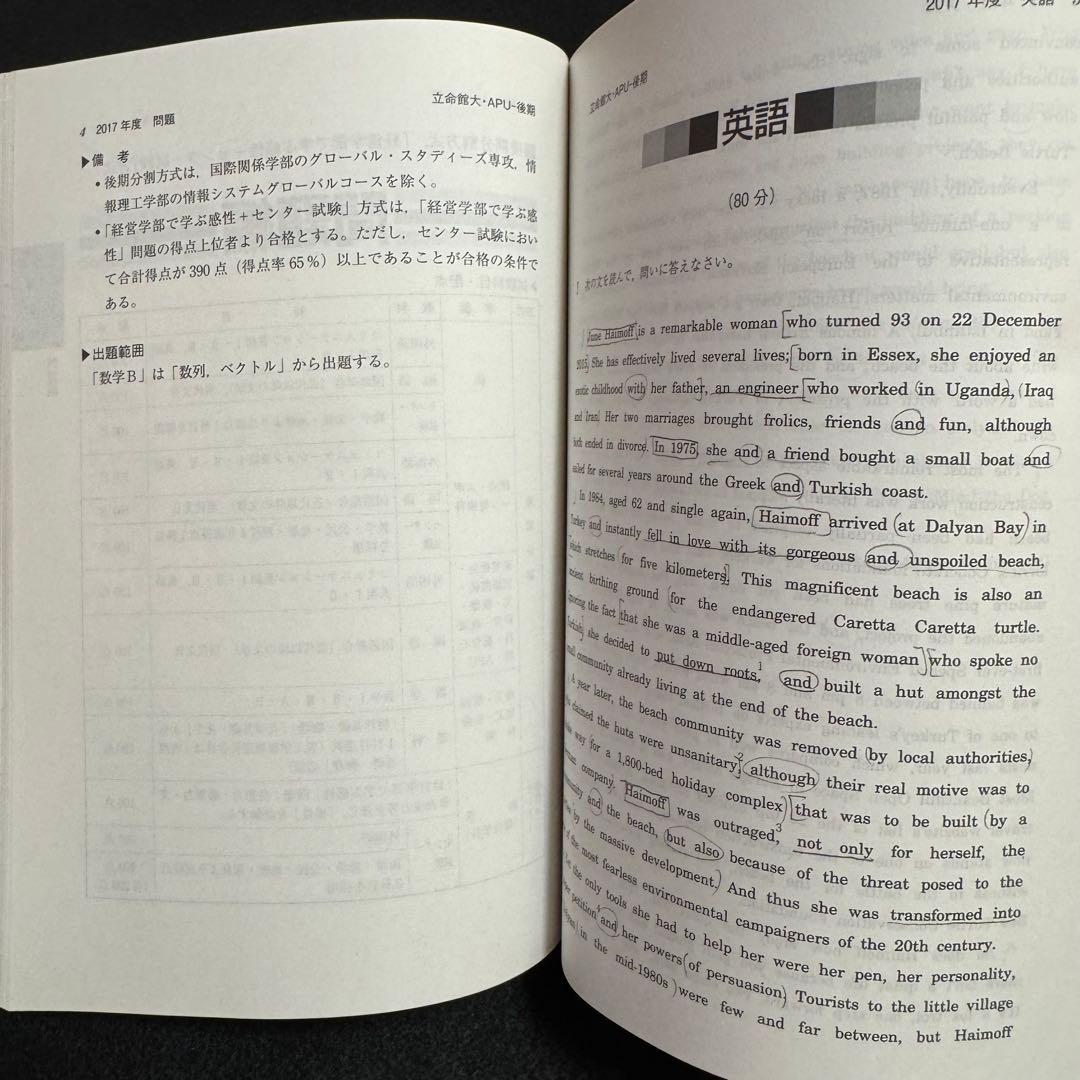 4 2017年度 問題
立命館大・APU-後期
▶備 考
・後期分割方式は，国際関係学部のグローバル・スタディーズ専攻，情
報理工学部の情報システムグローバルコースを除く。
・「経営学部で学ぶ感性＋センター試験」方式は，「経営学部で学ぶ感
性」問題の得点上位者より合格とする。ただし，センター試験におい
て合計得点が390点（得点率65％）以上であることが合格の条件で
ある。
▶出題範囲
「数学B」は「数列，ベクトル」から出題する。
2017年度 英語
立命館大・APU-後期
英語
(80分)
I 次の文を読んで，問いに答えなさい。
June Haimoff is a remarkable woman who turned 93 on 22 December
2015. She has effectively lived several lives; born in Essex, she enjoyed an
exotic childhood with her father, an engineer who worked in Uganda, Iraq
and Iran. Her two marriages brought frolics, friends and fun, although
both ended in divorce. In 1975, she and a friend bought a small boat and
sailed for several years around the Greek and Turkish coast.
In 1984, aged 62 and single again, Haimoff arrived at Dalyan Bay in
Turkey and instantly fell in love with its gorgeous and unspoiled beach,
which stretches for five kilometers. This magnificent beach is also an
ancient birthing ground for the endangered Caretta Caretta turtle.
Ignoring the fact that she was a middle-aged foreign woman who spoke no
Turkish, she decided to put down roots,1 and built a hut amongst the
small community already living at the end of the beach.
A year later, the beach community was removed by local authorities,
who claimed the huts were unsanitary,2 although their real motive was to
make way for a 1,800-bed holiday complex that was to be built by a
company. Haimoff was outraged,3 not only for herself, the
community and the beach, but also because of the threat posed to the
by the massive development. And thus she was transformed into
of the most fearless environmental campaigners of the 20th century.
the only tools she had to help her were her pen, her personality,
petition4 and her powers of persuasion. Tourists to the little village
in the mid-1980s were few and far between, but Haimoff